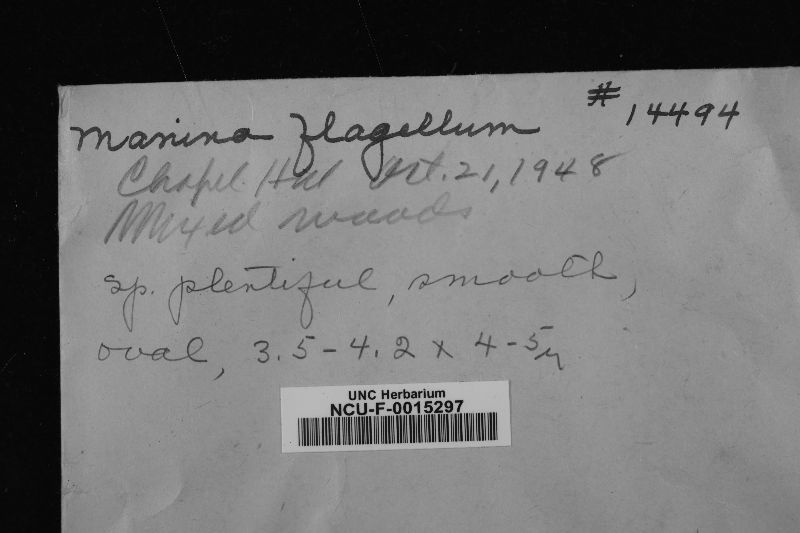 Manina flagellum # 14494
Chapel Hill Oct. 21, 1948
Mixed woods
sp. plentiful, smooth,
oval, 3.5-4.2 x 4-5µ
UNC Herbarium
NCU-F-0015297